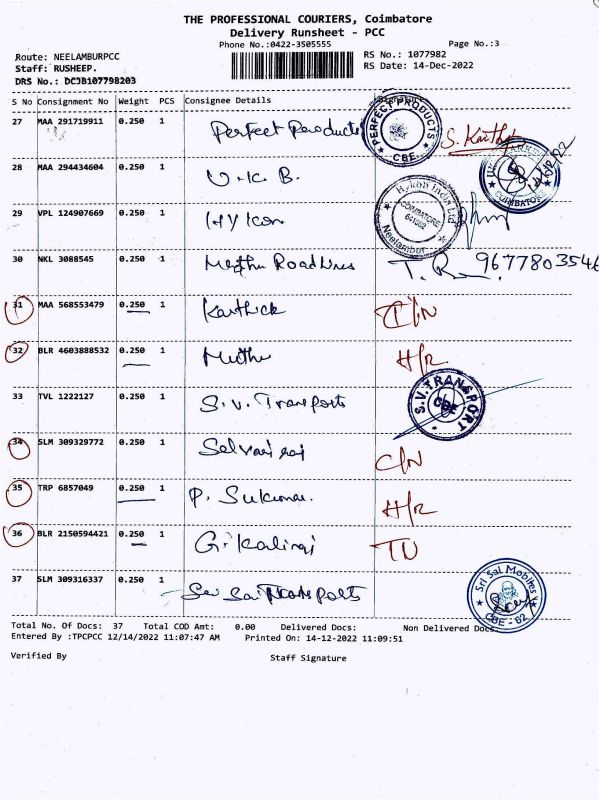 THE PROFESSIONAL COURIERS, Coimbatore
Delivery Runsheet - PCC
Phone No.:0422-3505555
Page No.:3
Route: NEELAMBURPCC
RS No.: 1077982
Staff: RUSHEEP.
RS Date: 14-Dec-2022
DRS No.: DCJB107798203
S No Consignment No Weight PCS Consignee Details
27 MAA 291719911 0.250 1 Perfect Products PERFECT PRODUCTS CBE. S. Karthi
28 MAA 294434604 0.250 1 U.K.B. COIMBATORE
29 VPL 124907669 0.250 1 Hykon Hykon India Ltd COIMBATORE 641062 Neelambur
30 NKL 3088545 0.250 1 Muthu Roadlines 9677803546
31 MAA 568553479 0.250 1 Karthick
32 BLR 4603888532 0.250 1 Muthu H/R
33 TVL 1222127 0.250 1 S.V. Transports S.V.TRANSPORT CBE
34 SLM 309329772 0.250 1 Selvaraj C/N
35 TRP 6857049 0.250 1 P. Sukumar. H/R
36 BLR 2150594421 0.250 1 G. Kaliraj
37 SLM 309316337 0.250 1 Sri Sai Transports Sri Sai Mobites CBE - 62
Total No. Of Docs: 37 Total COD Amt: 0.00 Delivered Docs: Non Delivered Docs:
Entered By :TPCPCC 12/14/2022 11:07:47 AM Printed On: 14-12-2022 11:09:51
Verified By Staff Signature